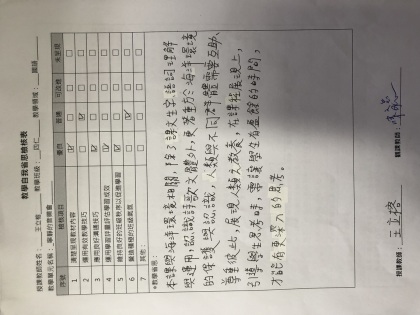 教學自我省思檢核表
授課教師姓名：王立榕 教學班級：四仁 教學領域：國語
教學單元名稱：寧靜的音樂會
序號 檢核項目 優良 普通 可改進 未呈現
1 清楚呈現教材內容 ☑
2 運用有效教學技巧 ☑
3 應用良好溝通技巧 ☑
4 運用學習評量評估學習成效 ☑
5 維持良好的班級秩序以促進學習 ☑
6 營造積極的班級氣氛 ☑
7 其他：
※教學省思：
本課與海洋環境相關，除了課文生字、語詞理解
與運用，認識詩歌文體外，更著重於海洋環境
的保護與認識，人類與不同群體需要互助、
尊重彼此，展現人類文教養，在課程展現上，
引導學生思考時，需讓學生有盈餘的時間，
才能有更深入的思考。
授課教師：王立榕 觀課教師：